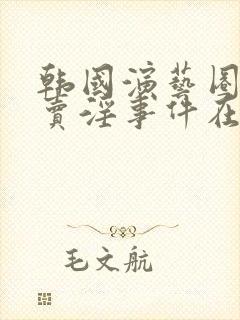 韩國演藝圈
賣淫事件在
毛文航